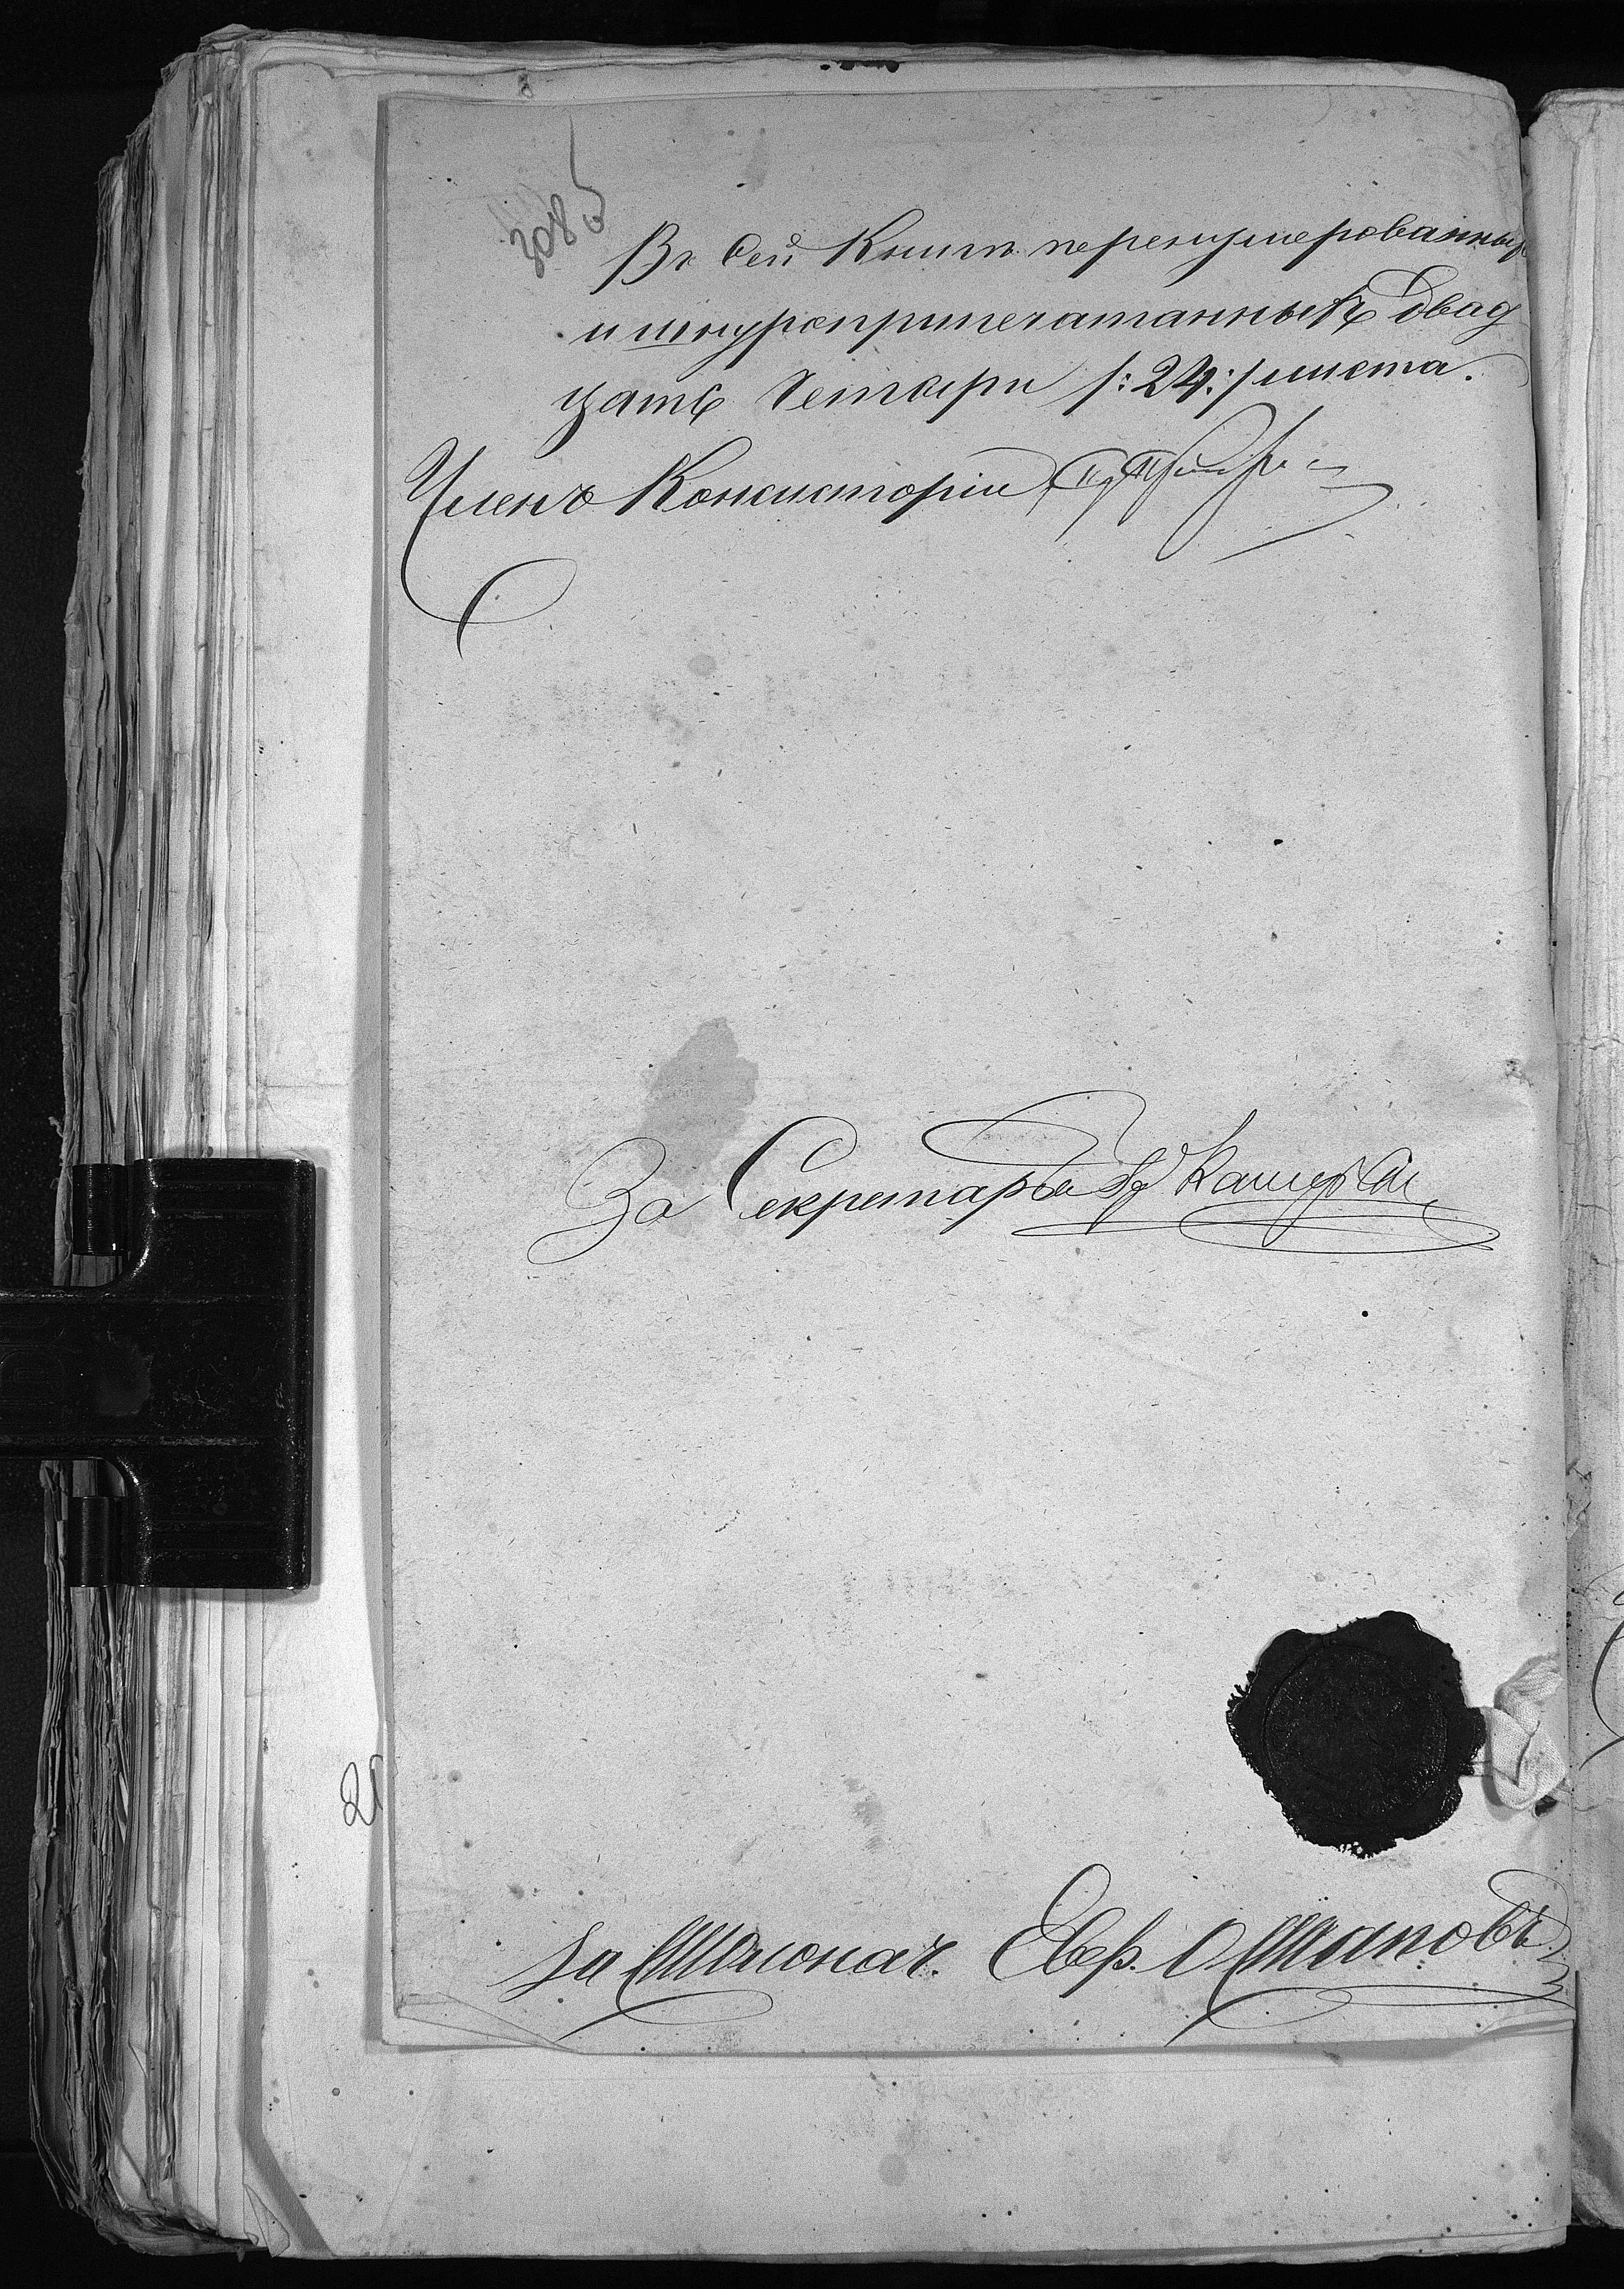 308 об
Въ сей Книгѣ перенумерованных
и шнуроприпечатанныхъ двад
цать Четыри /:24:/ листа.
Членъ Консисторіи
За Секретаря
За Столонач. Евф.